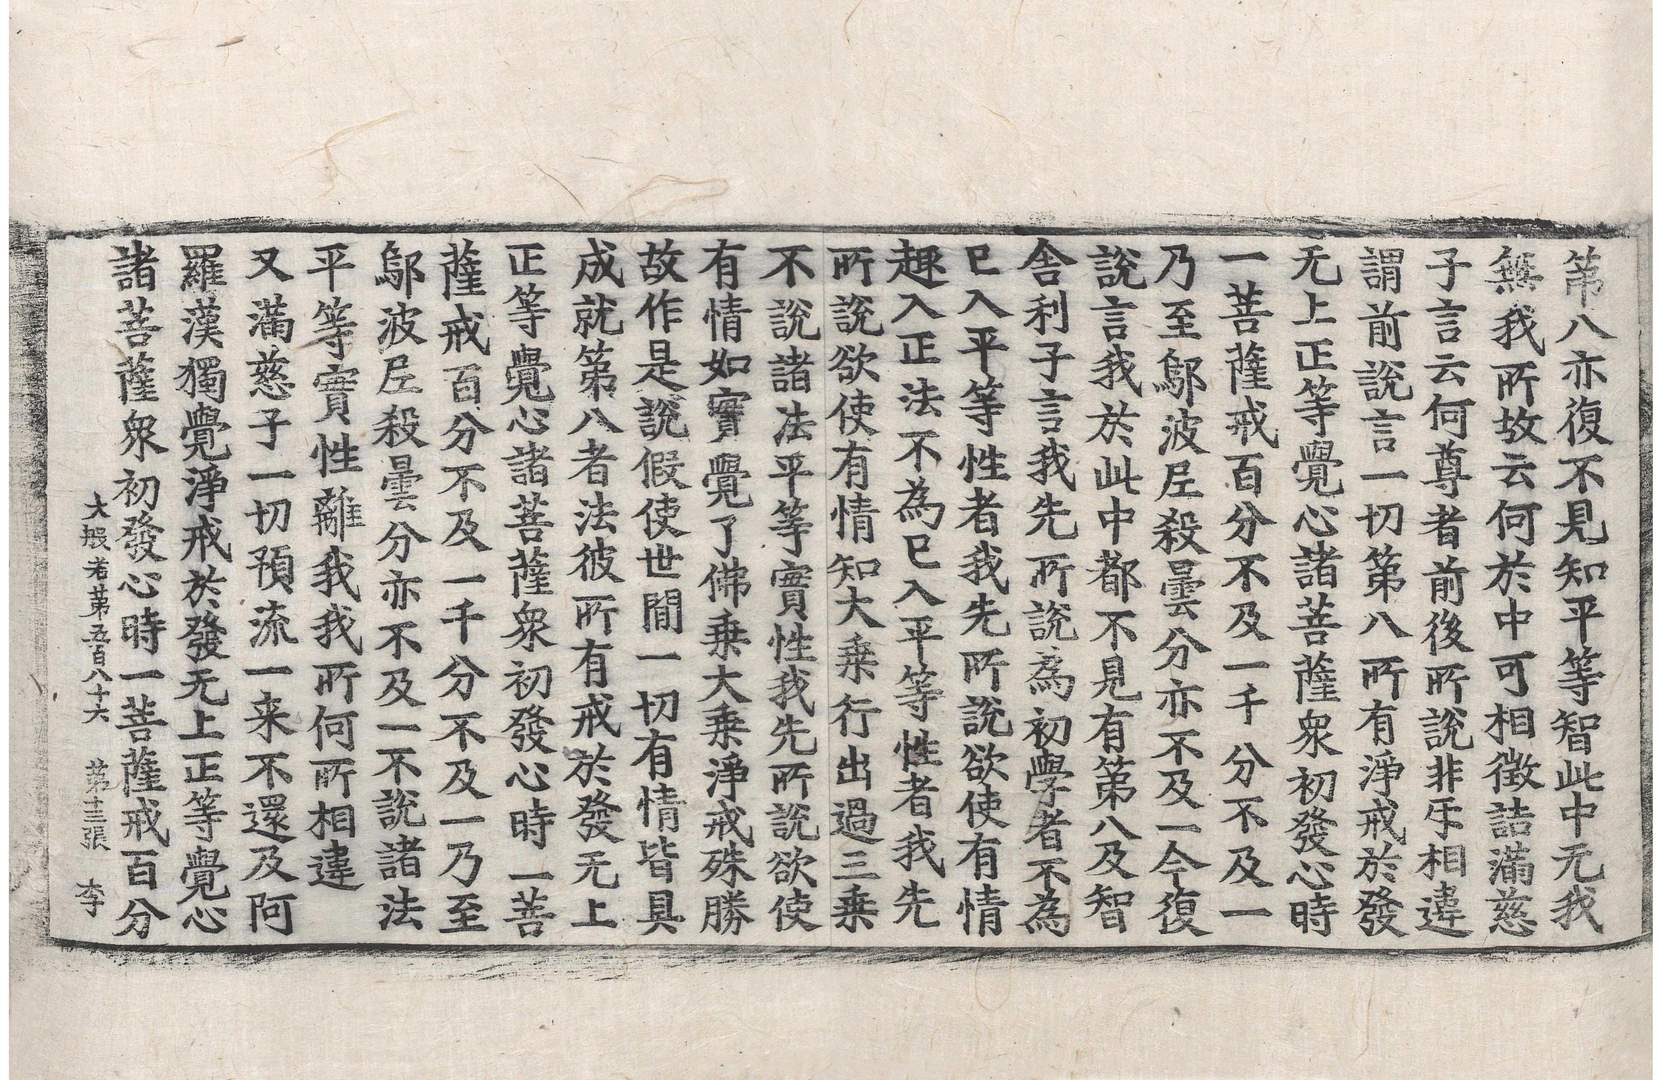 第八亦復不見知平等智此中无我
無我所故云何於中可相徵詰滿慈
子言云何尊者前後所說非乎相違
謂前說言一切第八所有淨戒於發
无上正等覺心諸菩薩衆初發心時
一菩薩戒百分不及一千分不及一
乃至鄔波尼殺曇分亦不及一今復
說言我於此中都不見有第八及智
舍利子言我先所說為初學者不為
已入平等性者我先所說欲使有情
趣入正法不為已入平等性者我先
所說欲使有情知大乗行出過三乗
不說諸法平等實性我先所說欲使
有情如實覺了佛乗大乗淨戒殊勝
故作是說假使世間一切有情皆具
成就第八者法彼所有戒於發无上
正等覺心諸菩薩衆初發心時一菩
薩戒百分不及一千分不及一乃至
鄔波尼殺曇分亦不及一不說諸法
平等實性離我我所何所相違
又滿慈子一切預流一来不還及阿
羅漢獨覺淨戒於發无上正等覺心
諸菩薩衆初發心時一菩薩戒百分
大㫊若第五百八十六 第十三張 李